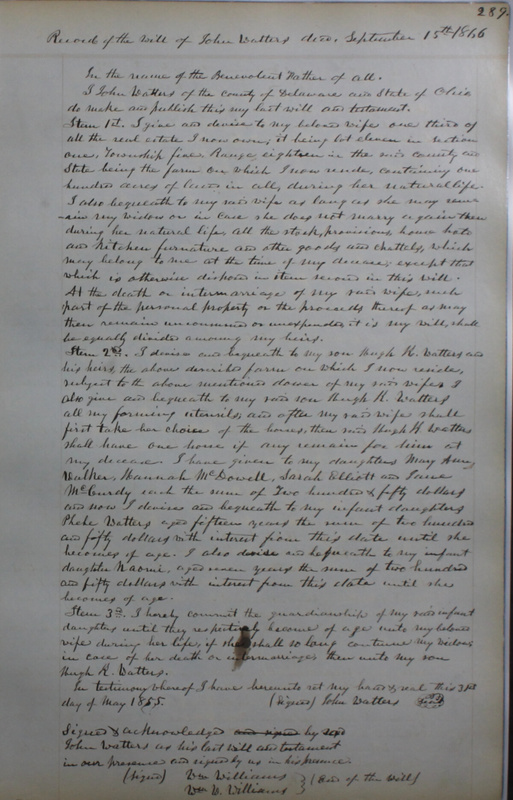 289
Record of the will of John Watters decd. September 15th 1866
In the name of the Benevolent Father of all.
I John Watters of the county of Delaware and State of Ohio
do make and publish this my last will and testament.
Item 1st. I give and devise to my beloved wife one third of
all the real estate I now own, it being lot eleven in section
one, Township five, Range eighteen in the said county and
State being the farm on which I now reside, containing one
hundred acres of land in all, during her natural life.
I also bequeath to my said wife as long as she may rem-
-ain my widow or in case she does not marry again then
during her natural life, all the stock, provisions, house hold
and kitchen furnature and other goods and chattels, which
may belong to me at the time of my decease; except that
which is otherwise disposed in item second in this will.
At the death or intermarriage of my said wife, such
part of the personal property or the proceeds thereof as may
then remain unconsumed or unexpended it is my will, shall
be equally divided among my heirs.
Item 2nd. I devise and bequeath to my son Hugh R. Watters and
his heirs, the above described farm on which I now reside,
subject to the above mentioned dower of my said wife, I
also give and bequeath to my said son Hugh R. Watters
all my farming utensils, and after my said wife shall
first take her choice of the horses, then said Hugh R Watters
shall have one horse if any remain for him at
my decease. I have given to my daughters Mary Ann
Walker, Hannah McDowell, Sarah Elliott and Jane
McCurdy each the sum of Two hundred & fifty dollars
and now I devise and bequeath to my infant daughters
Phebe Watters aged fifteen years the sum of two hundred
and fifty dollars with interest from this date until she
becomes of age. I also devise and bequeath to my infant
daughter Naomi, aged seven years the sum of two hundred
and fifty dollars with interest from this date until she
becomes of age.
Item 3d. I hereby commit the guardianship of my said infant
daughters until they respectively become of age unto my beloved
wife during her life, if she shall so long continue my widow,
in case of her death or intermarriage, then unto my son
Hugh R. Watters.
In testimony whereof I have hereunto set my hand & seal this 31st
day of May 1855. (Signed) John Watters Seal
Signed & acknowledged and signed by
John Watters as his last will and testament
in our presence and signed by us in his presence
(Signed) Wm Williams } (End of the will)
Wm W. Williams }